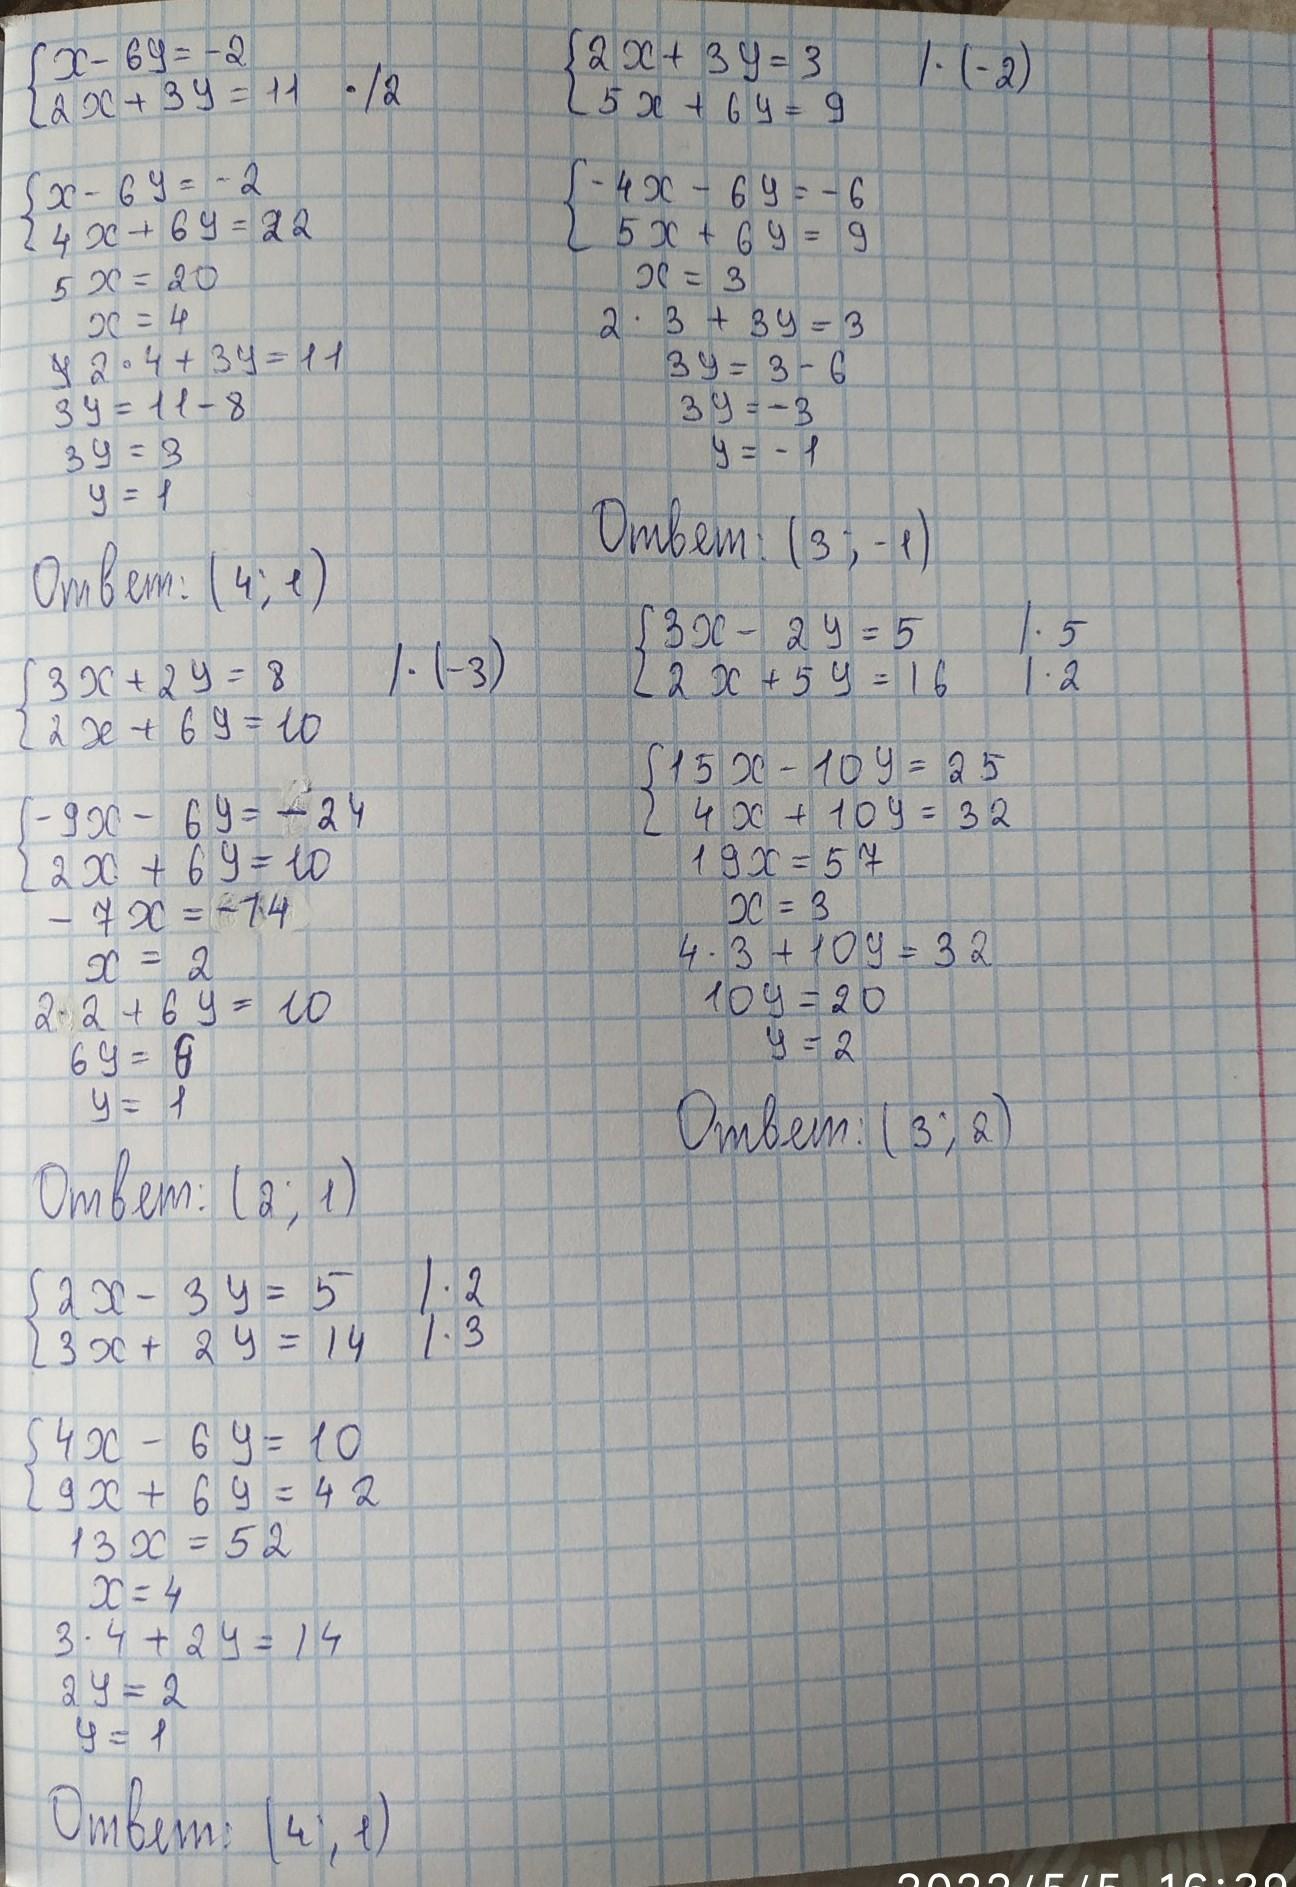 {x - 6y = -2
{2x + 3y = 11 ·/2
{x - 6y = -2
{4x + 6y = 22
5x = 20
x = 4
2·4 + 3y = 11
3y = 11 - 8
3y = 3
y = 1
Ответ: (4; 1)
{3x + 2y = 8 /·(-3)
{2x + 6y = 10
{-9x - 6y = -24
{2x + 6y = 10
-7x = -14
x = 2
2·2 + 6y = 10
6y = 6
y = 1
Ответ: (2; 1)
{2x - 3y = 5 /·2
{3x + 2y = 14 /·3
{4x - 6y = 10
{9x + 6y = 42
13x = 52
x = 4
3·4 + 2y = 14
2y = 2
y = 1
Ответ: (4; 1)
{2x + 3y = 3 /·(-2)
{5x + 6y = 9
{-4x - 6y = -6
{5x + 6y = 9
x = 3
2·3 + 3y = 3
3y = 3 - 6
3y = -3
y = -1
Ответ: (3; -1)
{3x - 2y = 5 /·5
{2x + 5y = 16 /·2
{15x - 10y = 25
{4x + 10y = 32
19x = 57
x = 3
4·3 + 10y = 32
10y = 20
y = 2
Ответ: (3; 2)